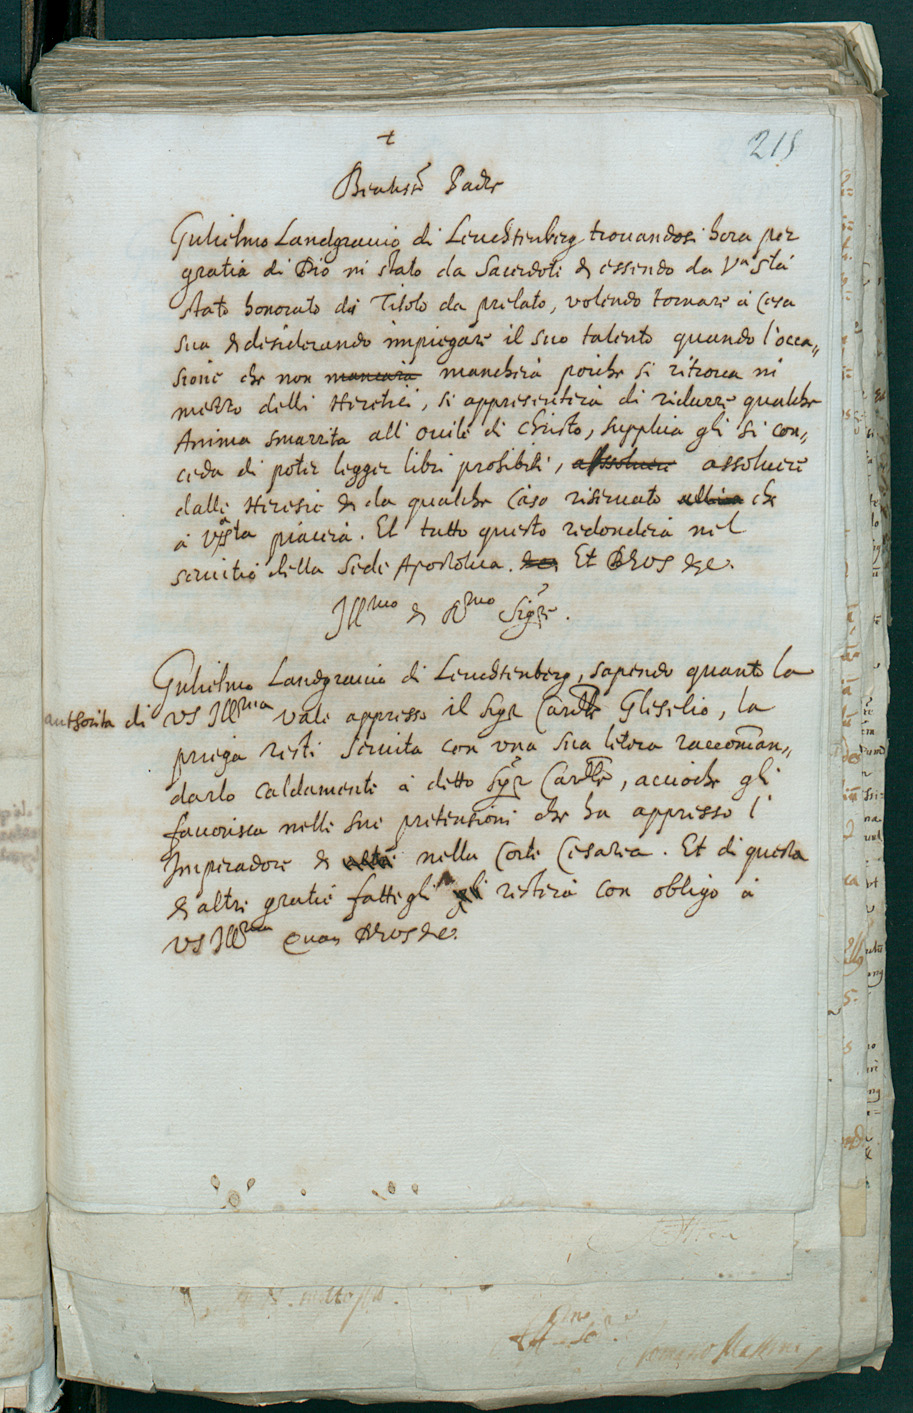 +
215
Beatiss.o Padre
Gulielmo Landgrauio di Leuchtenberg trouandosi hora per
gratia di Dio ni stato da Sacerdote & essendo da V.ra S.tá
stato honorato di Titolo da prelato, volendo tornare á Casa
sua & desiderando impiegare il suo talento quando l'occa„
sione che non mancará mancherá poiche si ritroua ni
mezzo delli Heretici, si appresenterá di ridurre qualche
Anima smarrita all' ouile di Christo, supplica gli si con„
ceda di poter legger libri prohibiti, assoluere assoluere
dalle Heresie & da qualche Caso riseruato che
á V.S.ta piacerá. Et tutto questo redonderá nel
seruitio della Sede Apostolica. Et Deus &c.
Ill.mo & R.mo Sig.re.
Gulielmo Landgrauio di Leuchtenberg, sapendo quanto la
authorita di VS Ill.ma vale appresso il Sig.r Card.le Gleselio, la
priega resti seruita con vna sua letera raccoman„
darlo caldamente á detto Sig.r Card.le, accioche gli
fauorisca nelle sue pretensioni che ha appresso l'
Imperadore & nella Corte Cesarea. Et di questa
& altre gratie fattegli restará con obligo á
VS Ill.ma Quam Deus &c.